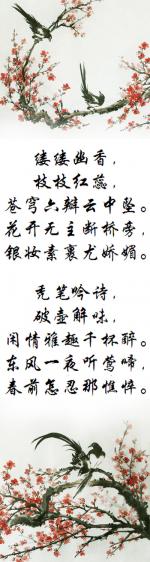 缕缕幽香，
枝枝红蕊，
苍穹六瓣云中坠。
花开无主断桥旁，
银妆素裹尤娇媚。
秃笔吟诗，
破壶解味，
闲情雅趣千杯醉。
东风一夜听莺啼，
春前怎忍那憔悴。